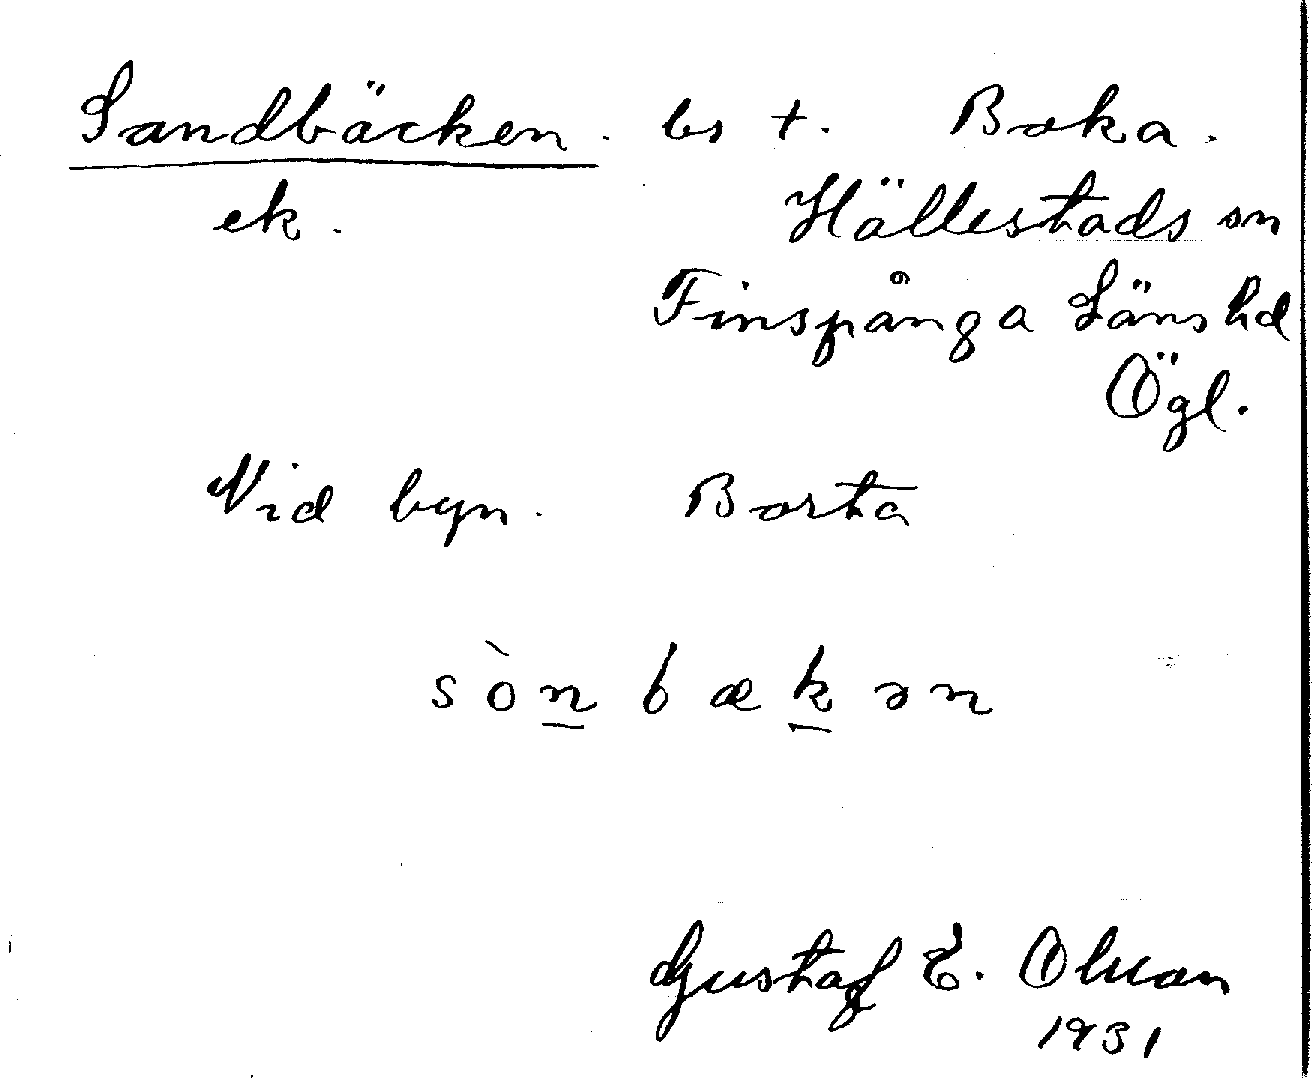 Sandbäcken. bs t. Boka.
ek. Hällestads sn
Finspånga Läns hd
Ögl.
Vid byn. Borta
sònbækən
Gustaf E. Olsson
1931